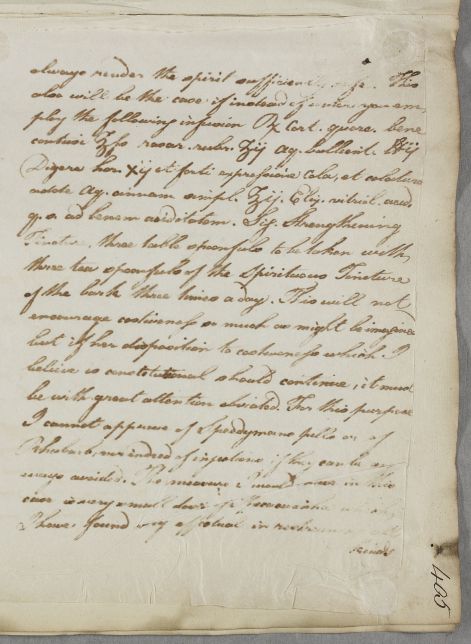 always render the spirit sufficiently safe. This
also will be the case if instead of water you em,
ploy the following infusion Rx Cort. querc. bene
contusi ℥fs rosar. rubr. ʒij aq. bullient. ℔ij
Digere hor. xij et forti expressione cola, et colaturæ
adde Aq. cinnam simpl. ℥ij. Elix. vitriol. acid
q. s. ad benam aciditatem. Sig. Strengthening
Tincture, three table spoonfuls to be taken with
three tea spoonfuls of the Spirituous Tincture
of the bark three times a day. This will not
encourage costiveness so much as might be imagined
but if her disposition to costiveness which I
believe is constitutional should continue, it must
be with great attention obviated. For this purpose
I cannot approve of Speedymans pills or of
Rhubarb, nor indeed of injections if they can be any
ways avoided. The measure I would have in this
case is a very small dose of Ipecacuanha which
I have found very effectual in
kinds
405